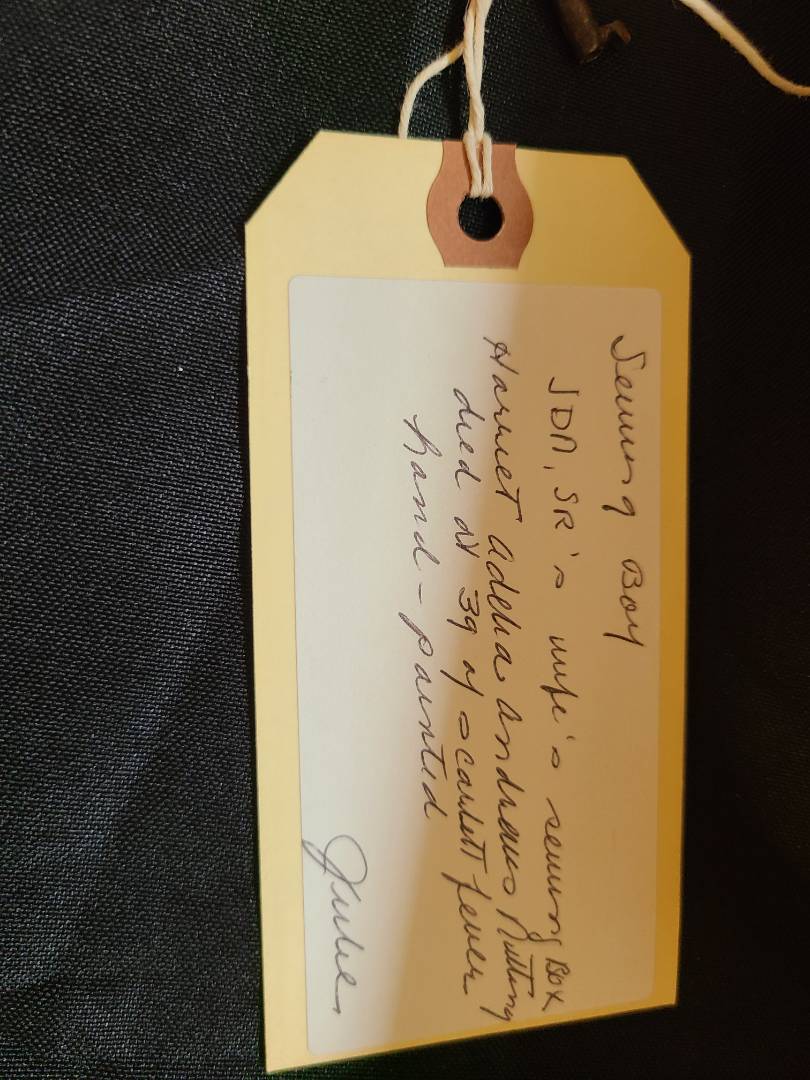 Sewing Box
JDN, SR's wife's sewing Box
Harriet Adelia Andrews Nutting
died at 39 of scarlett fever
hand-painted
Julie